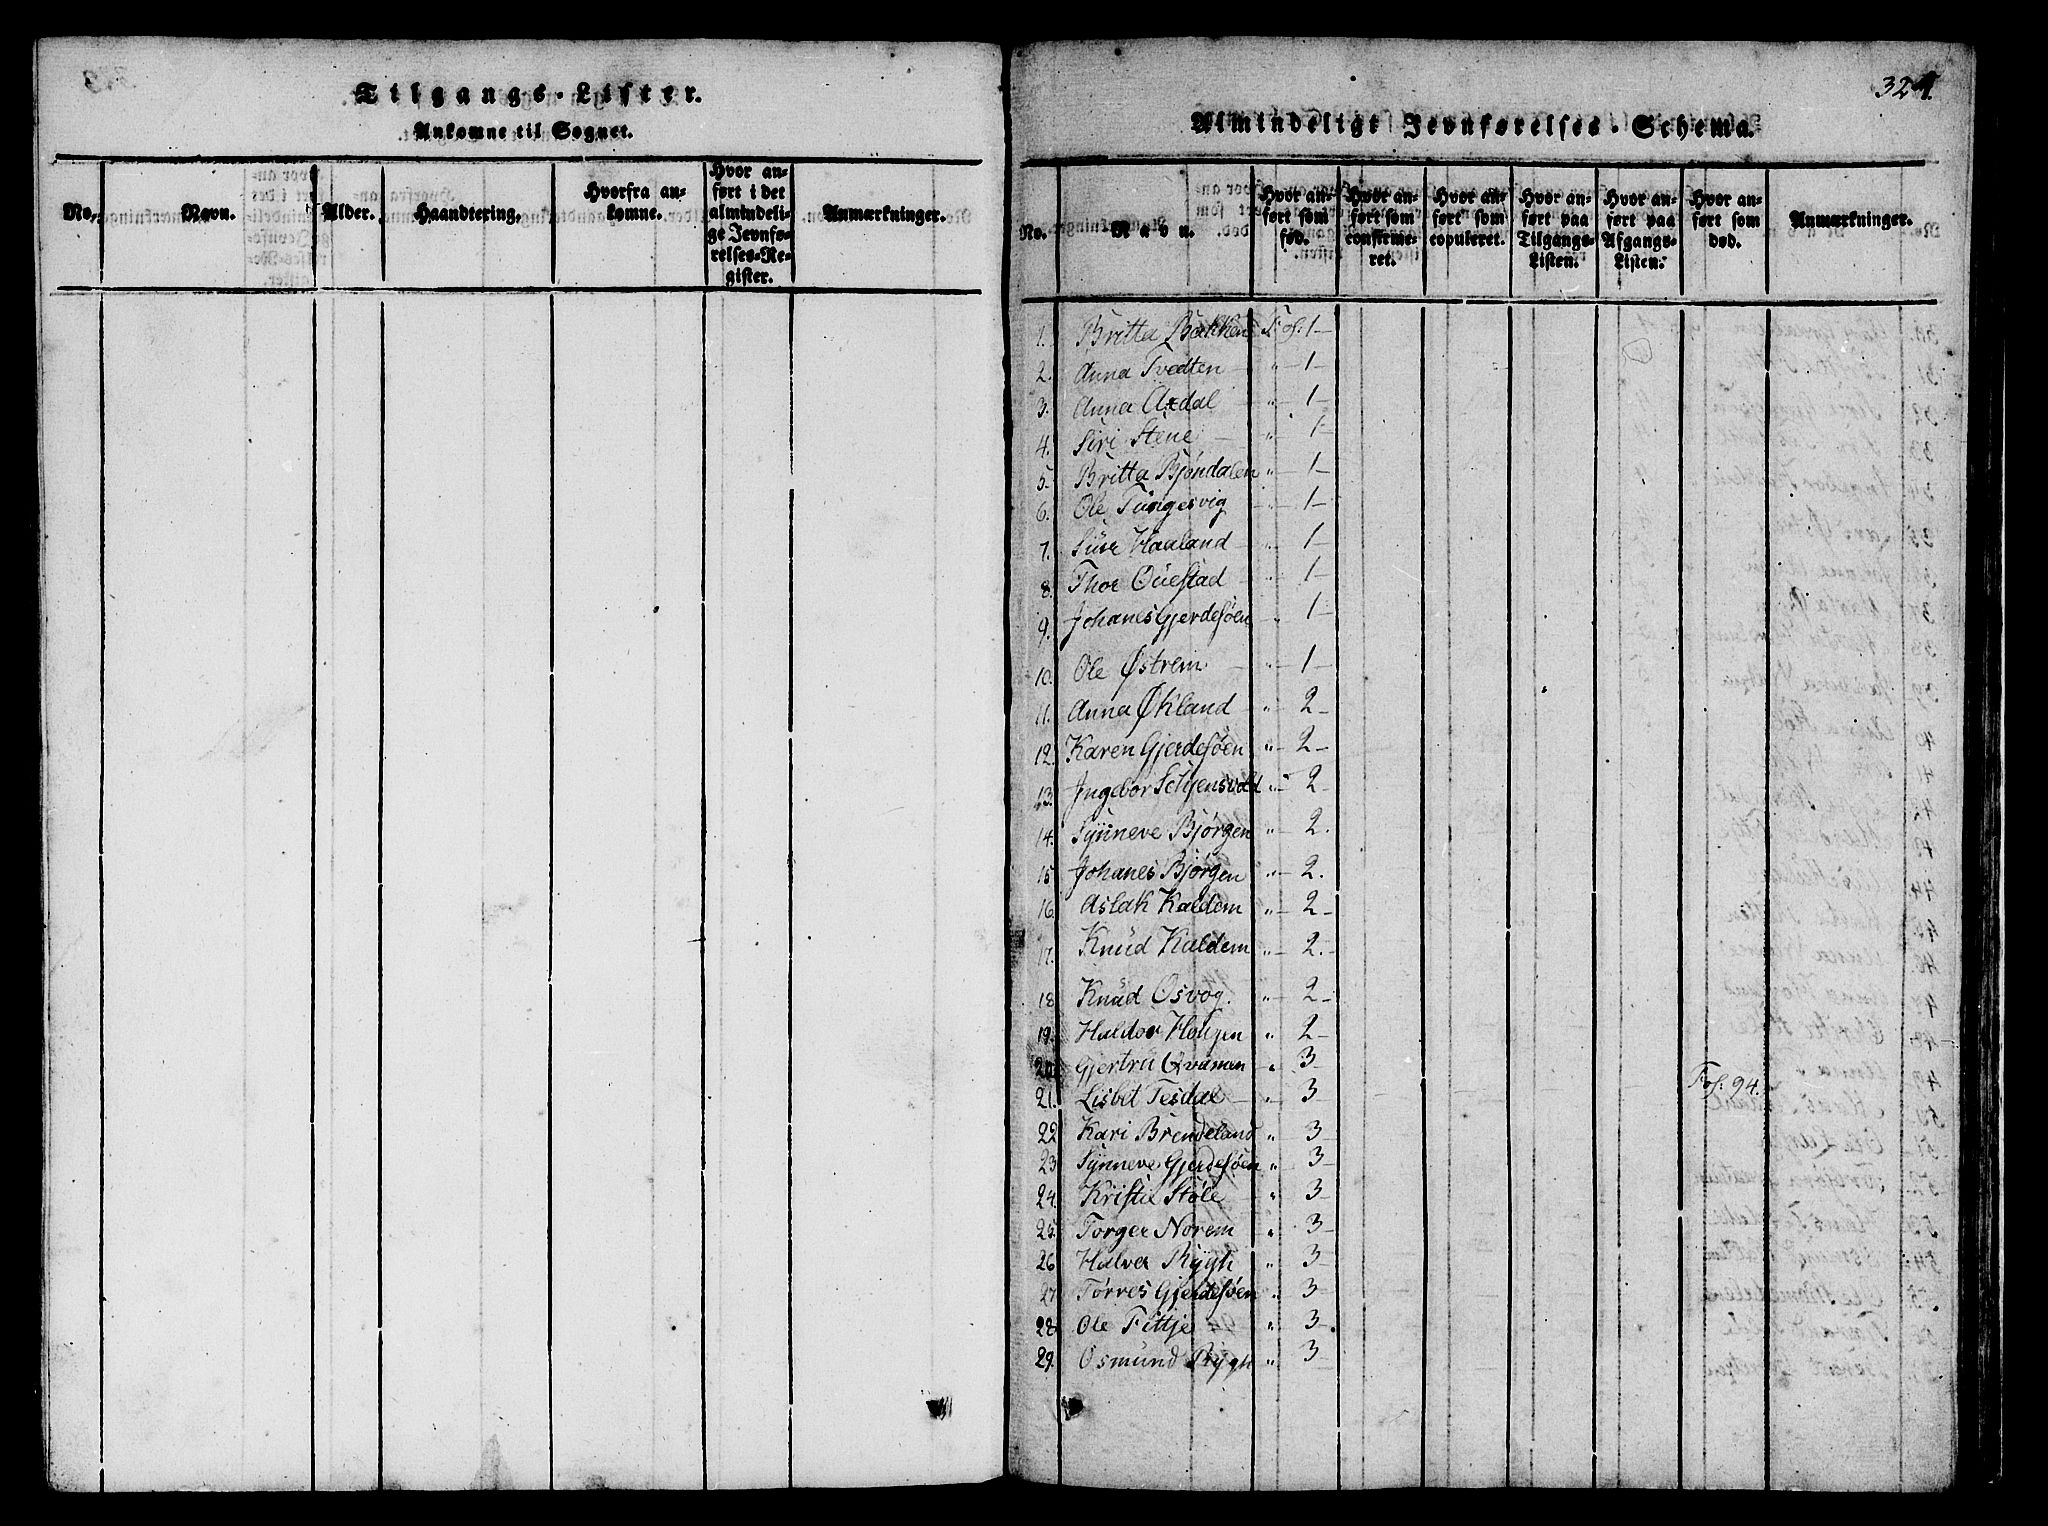 Tilgangs-Lister.
Ankomne til Sognet.
No. Navn. Alder. Haandtering. Hvorfra ankomne. Hvor anført i det almindelige Jevnførelses-Register. Anmærkninger.
324
Almindeligt Jevnførelses-Schema.
No. Navn. Hvor anført som fød. Hvor anført som confirmeret. Hvor anført som copuleret. Hvor anført paa Tilgangs-Listen. Hvor anført paa Afgangs-Listen. Hvor anført som død. Anmærkninger.
1. Britta Bakken Fol. 1 –
2. Anna Tvedten – „ – 1 –
3. Anna Axdal – „ – 1 –
4. Siri Stene – „ – 1 –
5. Britta Bjöndalen „ – 1 –
6. Ole Tungesvig – „ – 1 –
7. Haaland – „ – 1 –
8. Thor Questad – „ – 1 –
9. Johanes Gjerdesöen – „ – 1 –
10. Ole Østrem – „ – 1 –
11. Anna Økland – „ – 2 –
12. Karen Gjerdesöen „ – 2 –
13. Ingebor „ – 2 –
14. Synneve Bjørgen „ – 2.
15 Johanes Bjørgen „ – 2.
16. Aslak Kaldem „ – 2 –
17. Knud Kaldem „ – 2. –
18 Knud Osvog. „ – 2 –
19. Haldor Hougen „ 2 –
20. Gjertru Qvamen „ 3 –
21. Lisbet Tesdal – „ – 3 – Fol. 94.
22 Kari Brendeland „ 3 –
23 Synneve Gjerdesöen „ 3 –
24. Kristie Støle – „ 3 –
25. Torger Norem „ 3 –
26 Halver Rygh „ 3 –
27 Tørres Gjerdesöen „ 3 –
28 Ole Fittje „ 3 –
29. Osmund Rygh „ 3 –